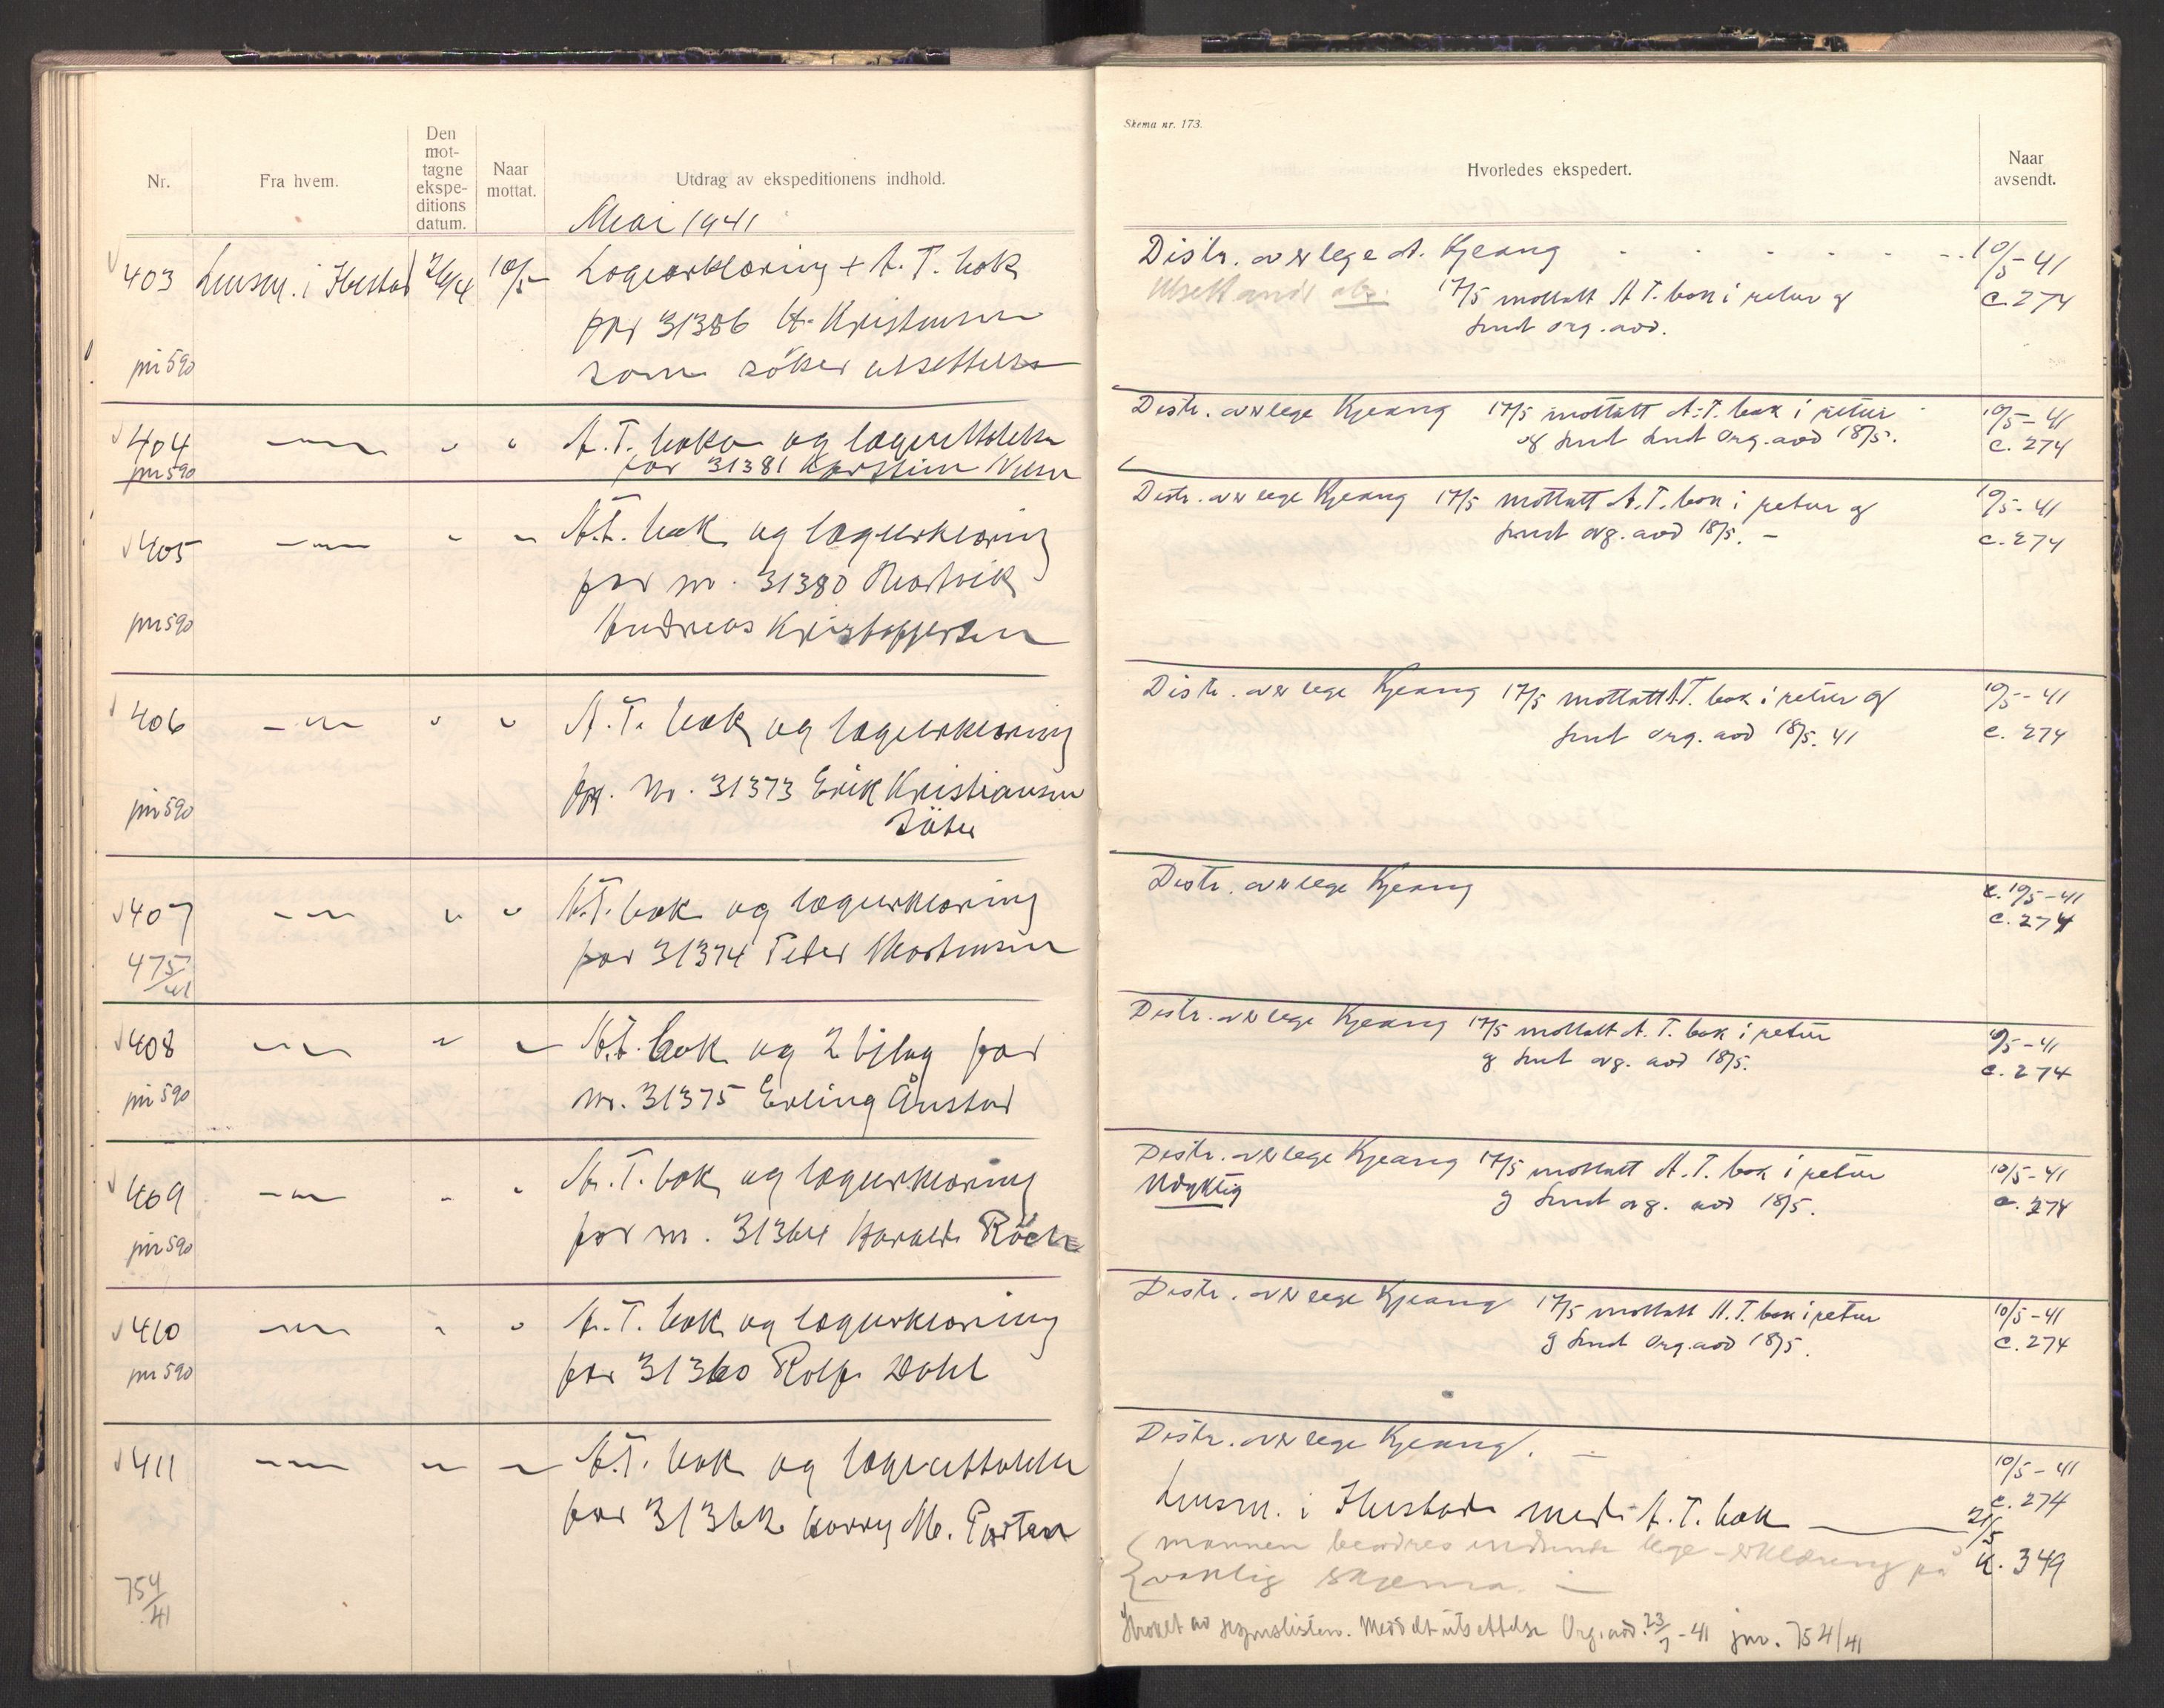 Nr.
Fra hvem.
Den
mot-
tagne
ekspe-
ditions
datum.
Naar
mottat.
Utdrag av ekspeditionens indhold.
Mai 1941
403 Lensm. i Ibestad 26/4 10/5 Legeerklæring + A.T. bok
for 31386 H. Kristensen
som söker utsettelse
jnr 590
404 A.T. boka og legeattester
jnr 590 for 31381
405 A.T. bok og legeerklæring
for nr. 31380 Hartvik
jnr 590 Andreas Kristoffersen
406 A.T. bok og legeerklæring
jnr 590 for nr. 31373 Erik Kristiansen
407 A.T. bok og legeerklæring
for 31374 Peder Mortensen
475/41
408 A.T. bok og 2 bilag for
jnr 590 nr. 31375 Erling Ånstad
409 A.T. bok og legeerklæring
jnr 590 for nr. 31364 Harald
410 A.T. bok og legeerklæring
jnr 590 for 31360 Rolf Dahl
411 A.T. bok og legeattester
for 31362 Harry M.
754/41
Skema nr. 173.
Hvorledes ekspedert.
Naar
avsendt.
Distr. overlege A. Kjeang 10/5-41
17/5 mottatt A.T. bok i retur og c. 274
sendt org. avd.
Distr. overlege Kjeang 17/5 mottatt A.T. bok i retur 10/5-41
og sendt sendt Org. avd 18/5. c. 274
Distr. overlege Kjeang 17/5 mottatt A.T. bok i retur og 10/5-41
sendt org. avd 18/5. - c. 274
Distr. overlege Kjeang 17/5 mottatt A.T. bok i retur og 10/5-41
sendt org. avd 18/5. 41 c. 274
Distr. overlege Kjeang c. 10/5-41
c. 274
Distr. overlege Kjeang 17/5 mottatt A.T. bok i retur 10/5-41
og sendt org. avd 18/5. c. 274
Distr. overlege Kjeang 17/5 mottatt A.T. bok i retur 10/5-41
Udyktig og sendt org. avd 18/5. c. 274
Distr. overlege Kjeang 17/5 mottatt A.T. bok i retur 10/5-41
og sendt Org. avd 18/5. c. 274
Distr. overlege Kjeang. - 10/5-41
c. 274
Lensm. i Ibestad med A.T. bok 21/5
mannen beordres innsende lege-erklæring på K. 349
vanlig skjema. -
Strøket av sesjonslisten. Meddelt utsettelse Org. avd. 23/7-41 jnr. 754/41